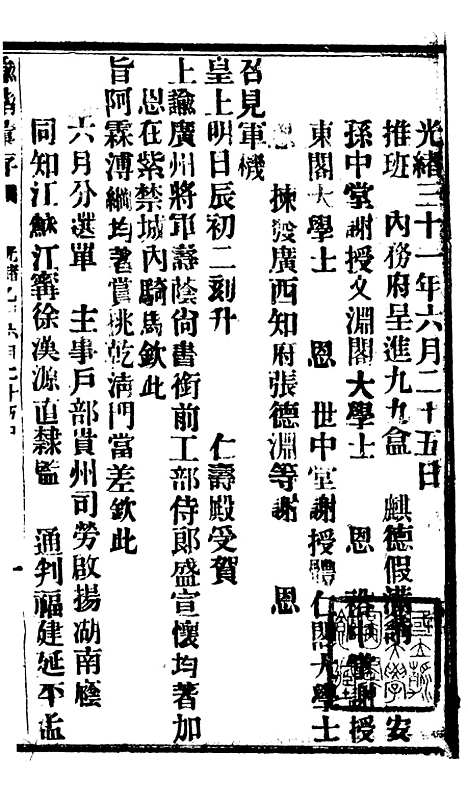 光緒三十一年六月二十五日
推班 內務府呈進九九盒 麒德假滿請 安
孫中堂謝授文淵閣大學士 恩 裕中堂謝授
東閣大學士 恩 世中堂謝授體仁閣大學士
恩 揀發廣西知府張德淵等謝 恩
召見軍機
皇上明日辰初二刻升 仁壽殿受賀
上諭廣州將軍壽蔭尚書銜前工部侍郎盛宣懷均著加
恩在紫禁城內騎馬欽此
旨阿霖溥綱均著賞挑乾清門當差欽此
六月分選單 主事戶部貴州司勞啟揚湖南廕
同知江蘇江甯徐漢源直隸監 通判福建延平孟